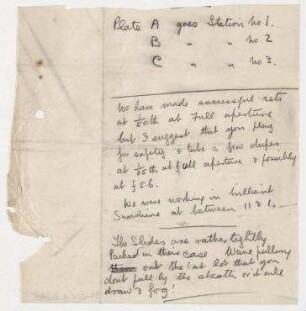 Plate A goes Station no 1.
B " " no 2
C " " no 3.
We have made successful sets
at 1/50th at Full aperture
but I suggest that you play
for safety & take a few dupes
at 1/50th at full aperture & possibly
at f5.6.
We were working in brilliant
Sunshine at between 11 & 1.
The Slides are rather tightly
Packed in their case When pulling
out the 1st lot that you
dont pull by the sheath or it will
draw & fog!